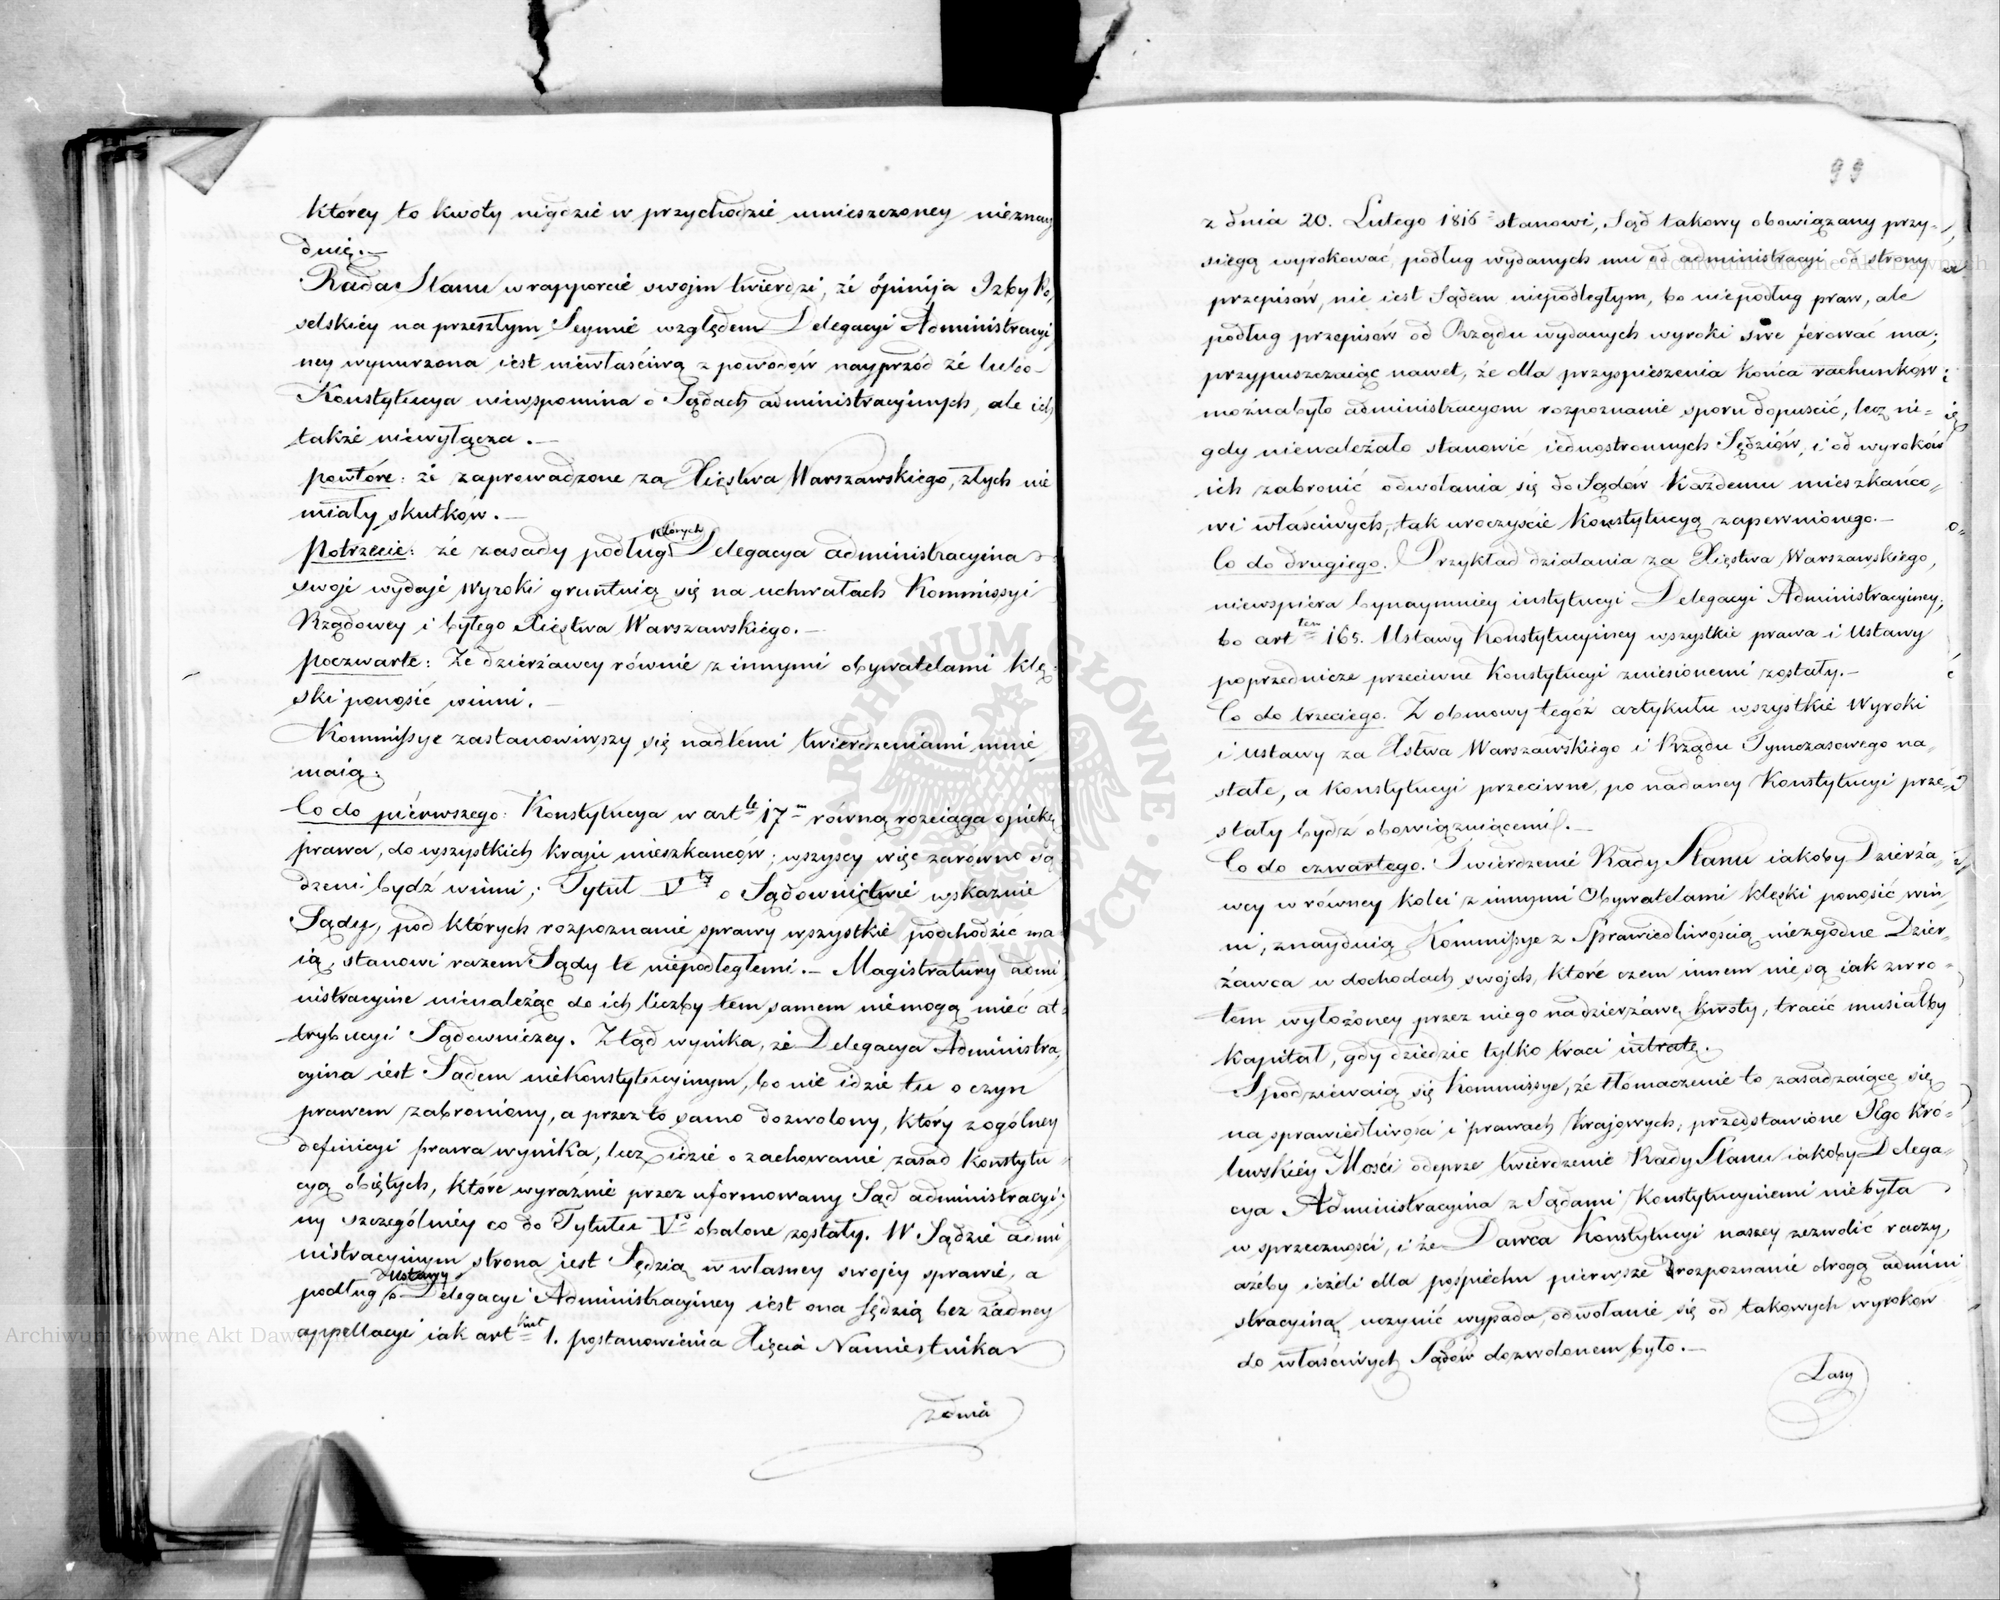 którey to kwoty nigdzie w przychodzie umieszczoney nieznay
duię.—
Rada Stanu w rapporcie swojm twierdzi, że opinija Izby Po,
selskiéy na przeszłym Seymie względem Delegacyi Administracyi,
ney wynurzona iest niewłaściwą z powodów nayprzód że lubo
Konstytucya niewspomina o Sądach administracyinych, ale ich
także niewyłącza.—
powtóre: że zaprowadzone za Xięstwa Warszawskiego, złych nie
miały skutków.—
Potrzecie: że zasady podług których Delegacya administracyina
swoje wydaje wyroki gruntuią się na uchwałach Kommissyi
Rządowey i byłego Xięstwa Warszawskiego.—
poczwarte: Że dzierżawcy równie z innymi obywatelami klę-
ski ponosić winni.—
Kommissye zastanowiwszy się nad témi twierdzeniami mnie,
maią:
Co do piérwszego: Konstytucya w artle 17m równą rozciąga opiekę
prawa, do wszystkich kraju mieszkanców; wszyscy więc zarówno są
dzeni bydź winni; Tytuł Vty o Sądownictwie wskazuie
Sądy, pod których rozpoznanie sprawy wszystkie podchodzić ma
ią, stanowi razem Sądy te niepodległemi.— Magistratury admi
nistracyine nienależąc do ich liczby tem samem niemogą mieć at-
trybucyi Sądowniczey. Ztąd wynika, że Delegacya Administra,
cyina iest Sądem niekonstytucyinym, bo nie idzie tu o czyn
prawem zabroniony, a przez to samo dozwolony, który z ogólney
definicyi prawa wynika, lecz idzie o zachowanie zasad Konstytu
cyą obiętych, które wyraźnie przez uformowany Sąd administracyi-
ny szczególniéy co do Tytułu Vo obalone zostały. W Sądzie admi
nistracyinym strona iest Sędzią w własney swojéy sprawie, a
podług Ustawy o Delegacyi Administracyiney iest ona sędzią bez żadney
appellacyi iak art kuł 1. postanowienia Xięcia Namiestnika
z dnia
99
z dnia 20. Lutego 1816 stanowi, Sąd takowy obowiązany przy-
sięgą wyrokować podług wydanych mu od administracyi od strony
przepisów, nie iest Sądem niepodległym, bo niepodług praw, ale
podług przepisów od Rządu wydanych wyroki swe ferować ma;
przypuszczaiąc nawet, że dla przyspieszenia końca rachunków
możnabyło administracyom rozpoznanie sporu dopuścić, lecz ni-
gdy nienależało stanowić iednostronnych Sędziów, i od wyroków
ich zabronić odwołania się do Sądów każdemu mieszkańco,
wi właściwych, tak uroczyście Konstytucyą zapewnionego.—
Co do drugiego. Przykład działania za Xięstwa Warszawskiego,
niewspiera bynaymniéy instytucyi Delegacyi Administracyiney,
bo art tem 165. Ustawy Konstytucyiney wszystkie prawa i Ustawy
poprzednicze przeciwne Konstytucyi zniesionemi zostały.—
Co do trzeciego. Z osnowy tegóż artykułu wszystkie Wyroki
i ustawy za Xstwa Warszawskiego i Rządu Tymczasowego na,
stałe, a Konstytucyi przeciwne, po nadaney Konstytucyi prze-
stały bydź obowiązuiącemi.—
Co do czwartego. Twierdzenie Rady Stanu iakoby Dzierża,
wcy w równey kolei z innymi Obywatelami klęski ponosić win
ni, znayduią Kommissye z Sprawiedliwością niezgodne Dzier-
żawca w dochodach swojch, które czem innem nie są iak zwro-
tem wyłożoney przez niego na dzierżawę kwoty, tracić musiałby
kapitał, gdy dziedzic tylko traci intratę.
Spodziewaią się Kommissye, że tłomaczenie to zasadzaiące się
na sprawiedliwości i prawach krajowych, przedstawione JEgo Kró-
lewskiéy Mości odeprze twierdzenie Rady Stanu iakoby Delega-
cya Administracyina z Sądami Konstytucyinemi niebyła
w sprzeczności, i że Dawca Konstytucyi naszey zezwolić raczy,
ażeby ieżeli dla pośpiechu pierwsze rozpoznanie drogą admini
stracyiną uczynić wypada, odwołanie się od takowych wyroków
do właściwych Sądów dozwolonem było.—
Lasy